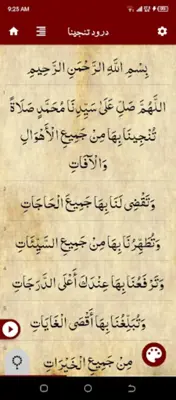 9:25 AM
درود تنجینا
بِسْمِ اللَّهِ الرَّحْمَنِ الرَّحِيمِ
اَللَّهُمَّ صَلِّ عَلَىٰ سَيِّدِنَا مُحَمَّدٍ صَلَاةً
تُنْجِينَا بِهَا مِنْ جَمِيعِ الْأَهْوَالِ
وَالْآفَاتِ
وَتَقْضِى لَنَا بِهَا جَمِيعَ الْحَاجَاتِ
وَتُطَهِّرُنَا بِهَا مِنْ جَمِيعِ السَّيِّئَاتِ
وَتَرْفَعُنَا بِهَا عِنْدَكَ أَعْلَى الدَّرَجَاتِ
وَتُبَلِّغُنَا بِهَا أَقْصَى الْغَايَاتِ
مِنْ جَمِيعِ الْخَيْرَاتِ